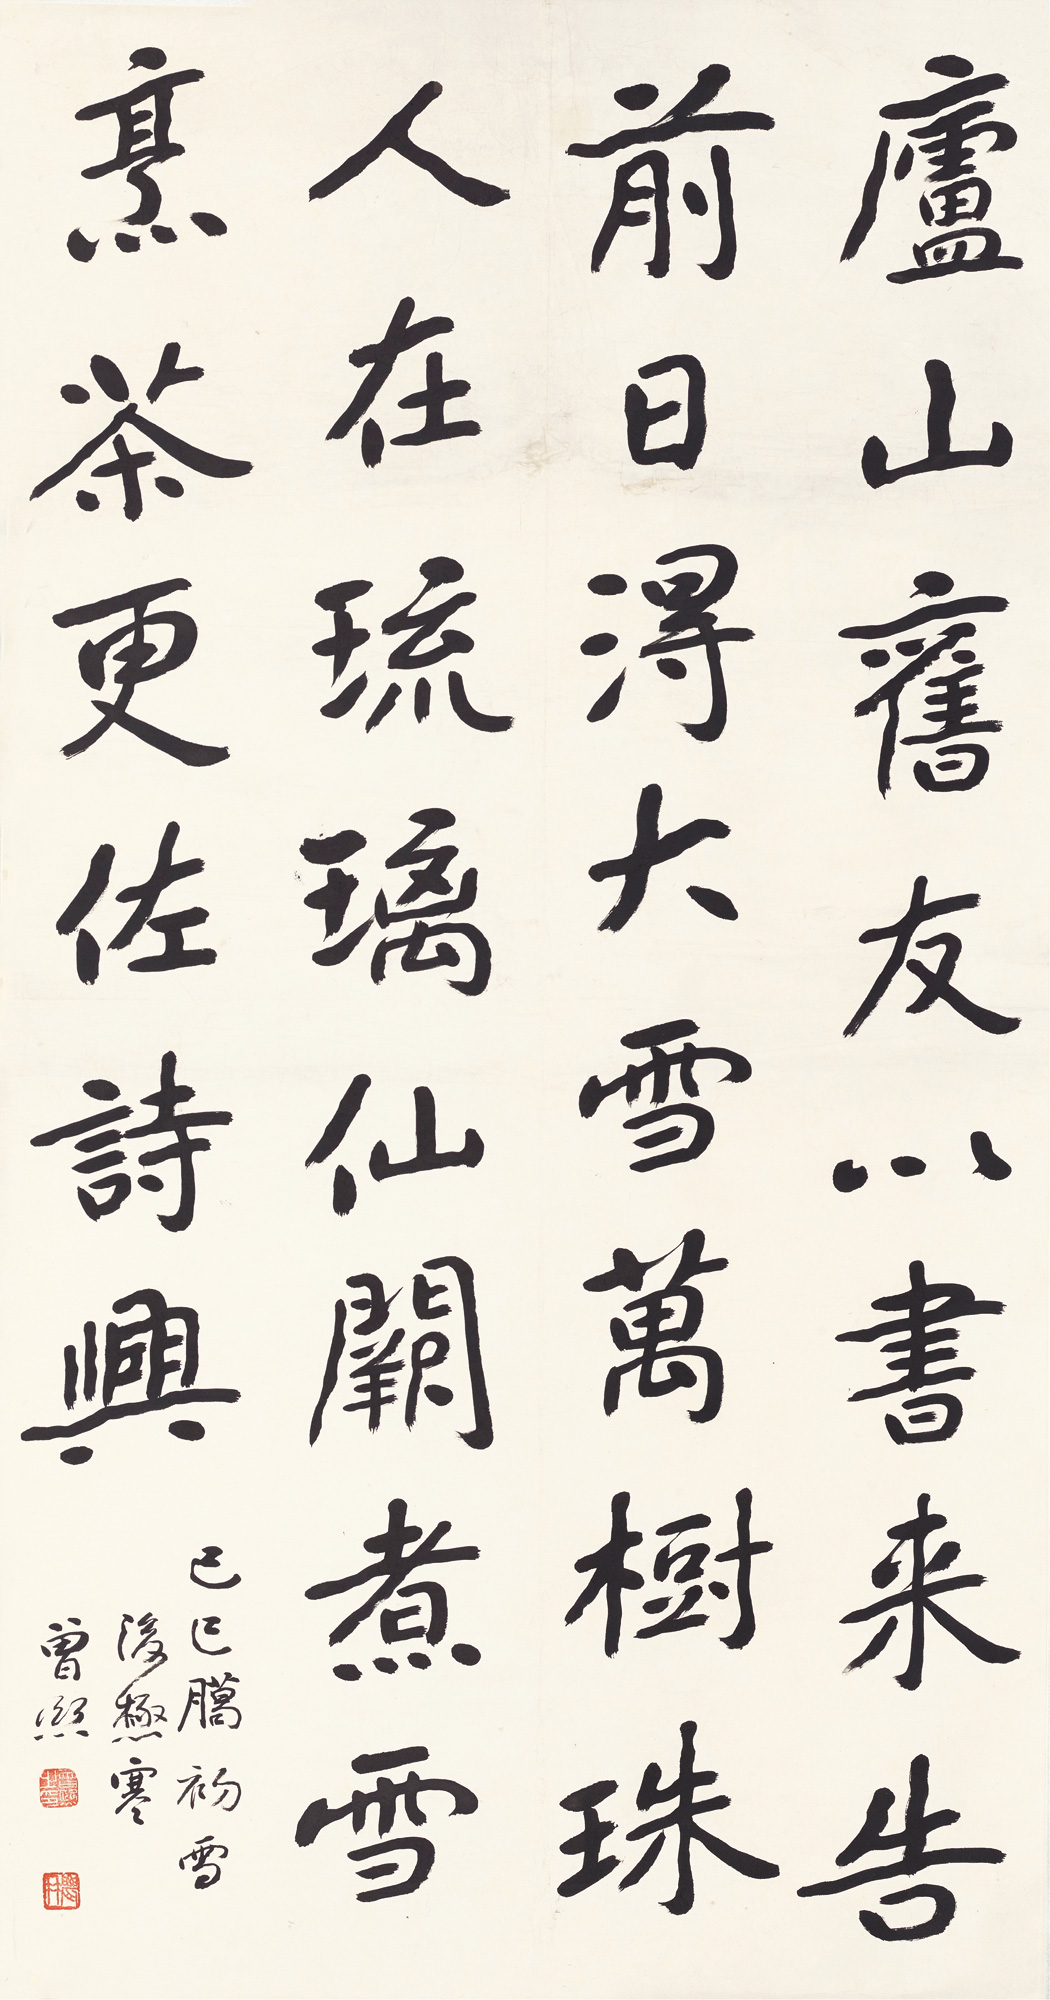 廬山舊友以書来告
前日得大雪萬樹珠
人在琉璃仙闕煮雪
烹茶更佐詩興
己巳臈初雪
後極寒
曾熙